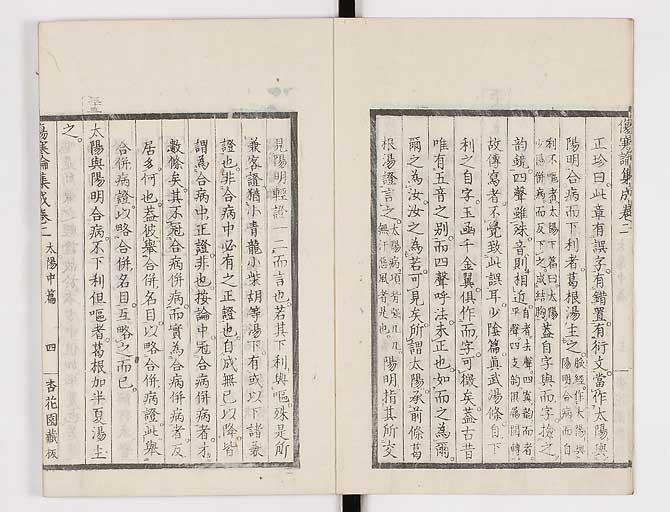 傷寒論集成卷二
正珍曰此章有誤字有錯置有衍文當作太陽與
陽明合病而下利者葛根湯主之脉經作太陽與陽明合病而自
利不嘔者太陽下篇曰太陽少陽併病而反下之成結胸蓋自字與而字撿之
韵鏡四聲雖殊音則相近自者去聲四寘韵而者平聲四支韵
故傳寫者不覺致此誤耳少陰篇眞武湯條自下
利之自字玉函千金翼俱作而字可徵矣蓋古昔
唯有五音之别而四聲呼法未正也如而之爲爾
爾之爲汝汝之爲若可見矣所謂太陽承前條葛
根湯證言之太陽病項背强几几無汗惡風者是也陽明指其所交
見陽明輕證一二而言也若其下利與嘔殊是所
兼客證猶小青龍小柴胡等湯下有或以下諸兼
證也非合病中必有之正證也自成無已以降皆
謂爲合病中正證非也按論中冠合病併病者才
數條矣其不冠合病併病而實爲合病併病者反
居多何也蓋彼舉合併名目以略合併病證此舉
合併病證以略合併名目互略之而已
太陽與陽明合病不下利但嘔者葛根加半夏湯主
之
傷寒論集成卷二 太陽中篇 四 杏花園藏板